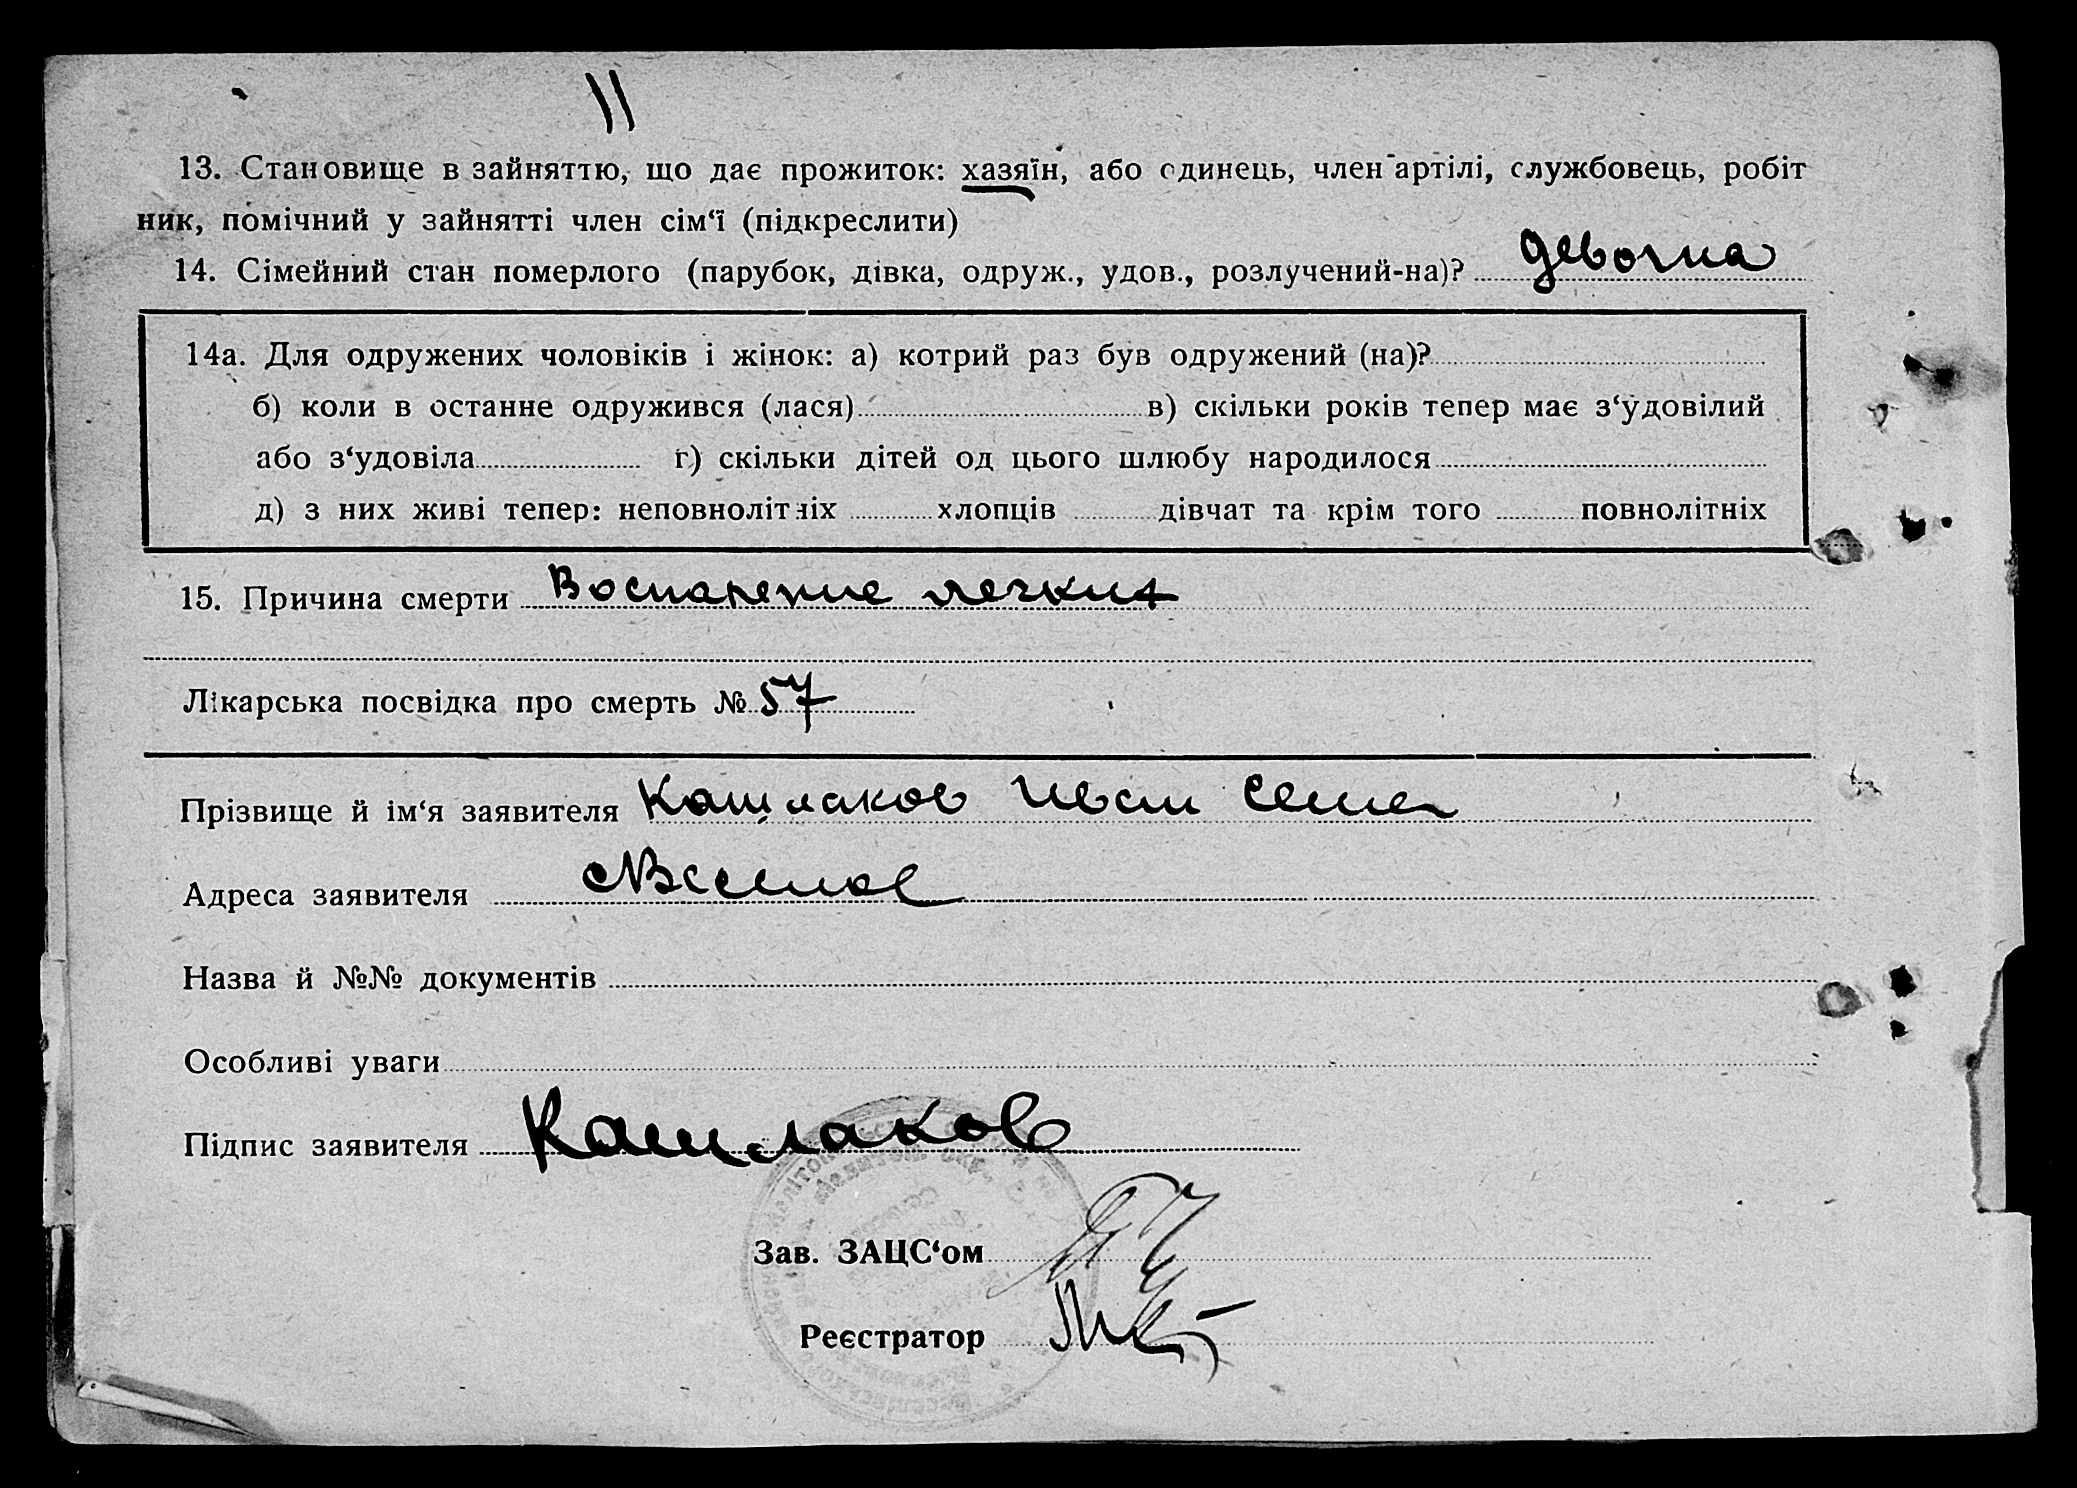 \\
13. Становище в зайняттю, що дає прожиток: хазяїн, або одинець, член артілі, службовець, робіт
ник, помічний у зайнятті член сім‘ї (підкреслити)
14. Сімейний стан померлого (парубок, дівка, одруж., удов., розлучений-на)? девочка
14а. Для одружених чоловіків і жінок: а) котрий раз був одружений (на)?
б) коли в останнє одружився (лася) в) скільки років тепер має з‘удовілий
або з‘удовіла г) скільки дітей од цього шлюбу народилося
д) з них живі тепер: неповнолітніх хлопців дівчат та крім того повнолітніх
15. Причина смерти Воспаление легких
Лікарська посвідка про смерть № 57
Прізвище й ім‘я заявителя Кашлаков Иван Семен
Адреса заявителя
Назва й №№ документів
Особливі уваги
Підпис заявителя Кашлаков
Зав. ЗАЦС‘ом
Реєстратор